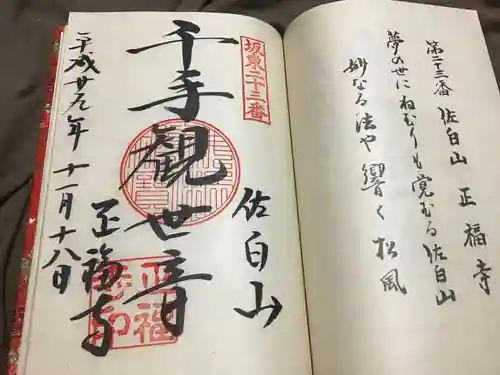 第二十三番 佐白山 正福寺
夢の世にねむりも覚むる佐白山
妙なる法や響く松風
坂東二十三番
佐白山
千手観世音
正福寺
平成廿九年 十一月十八日
正福寺印